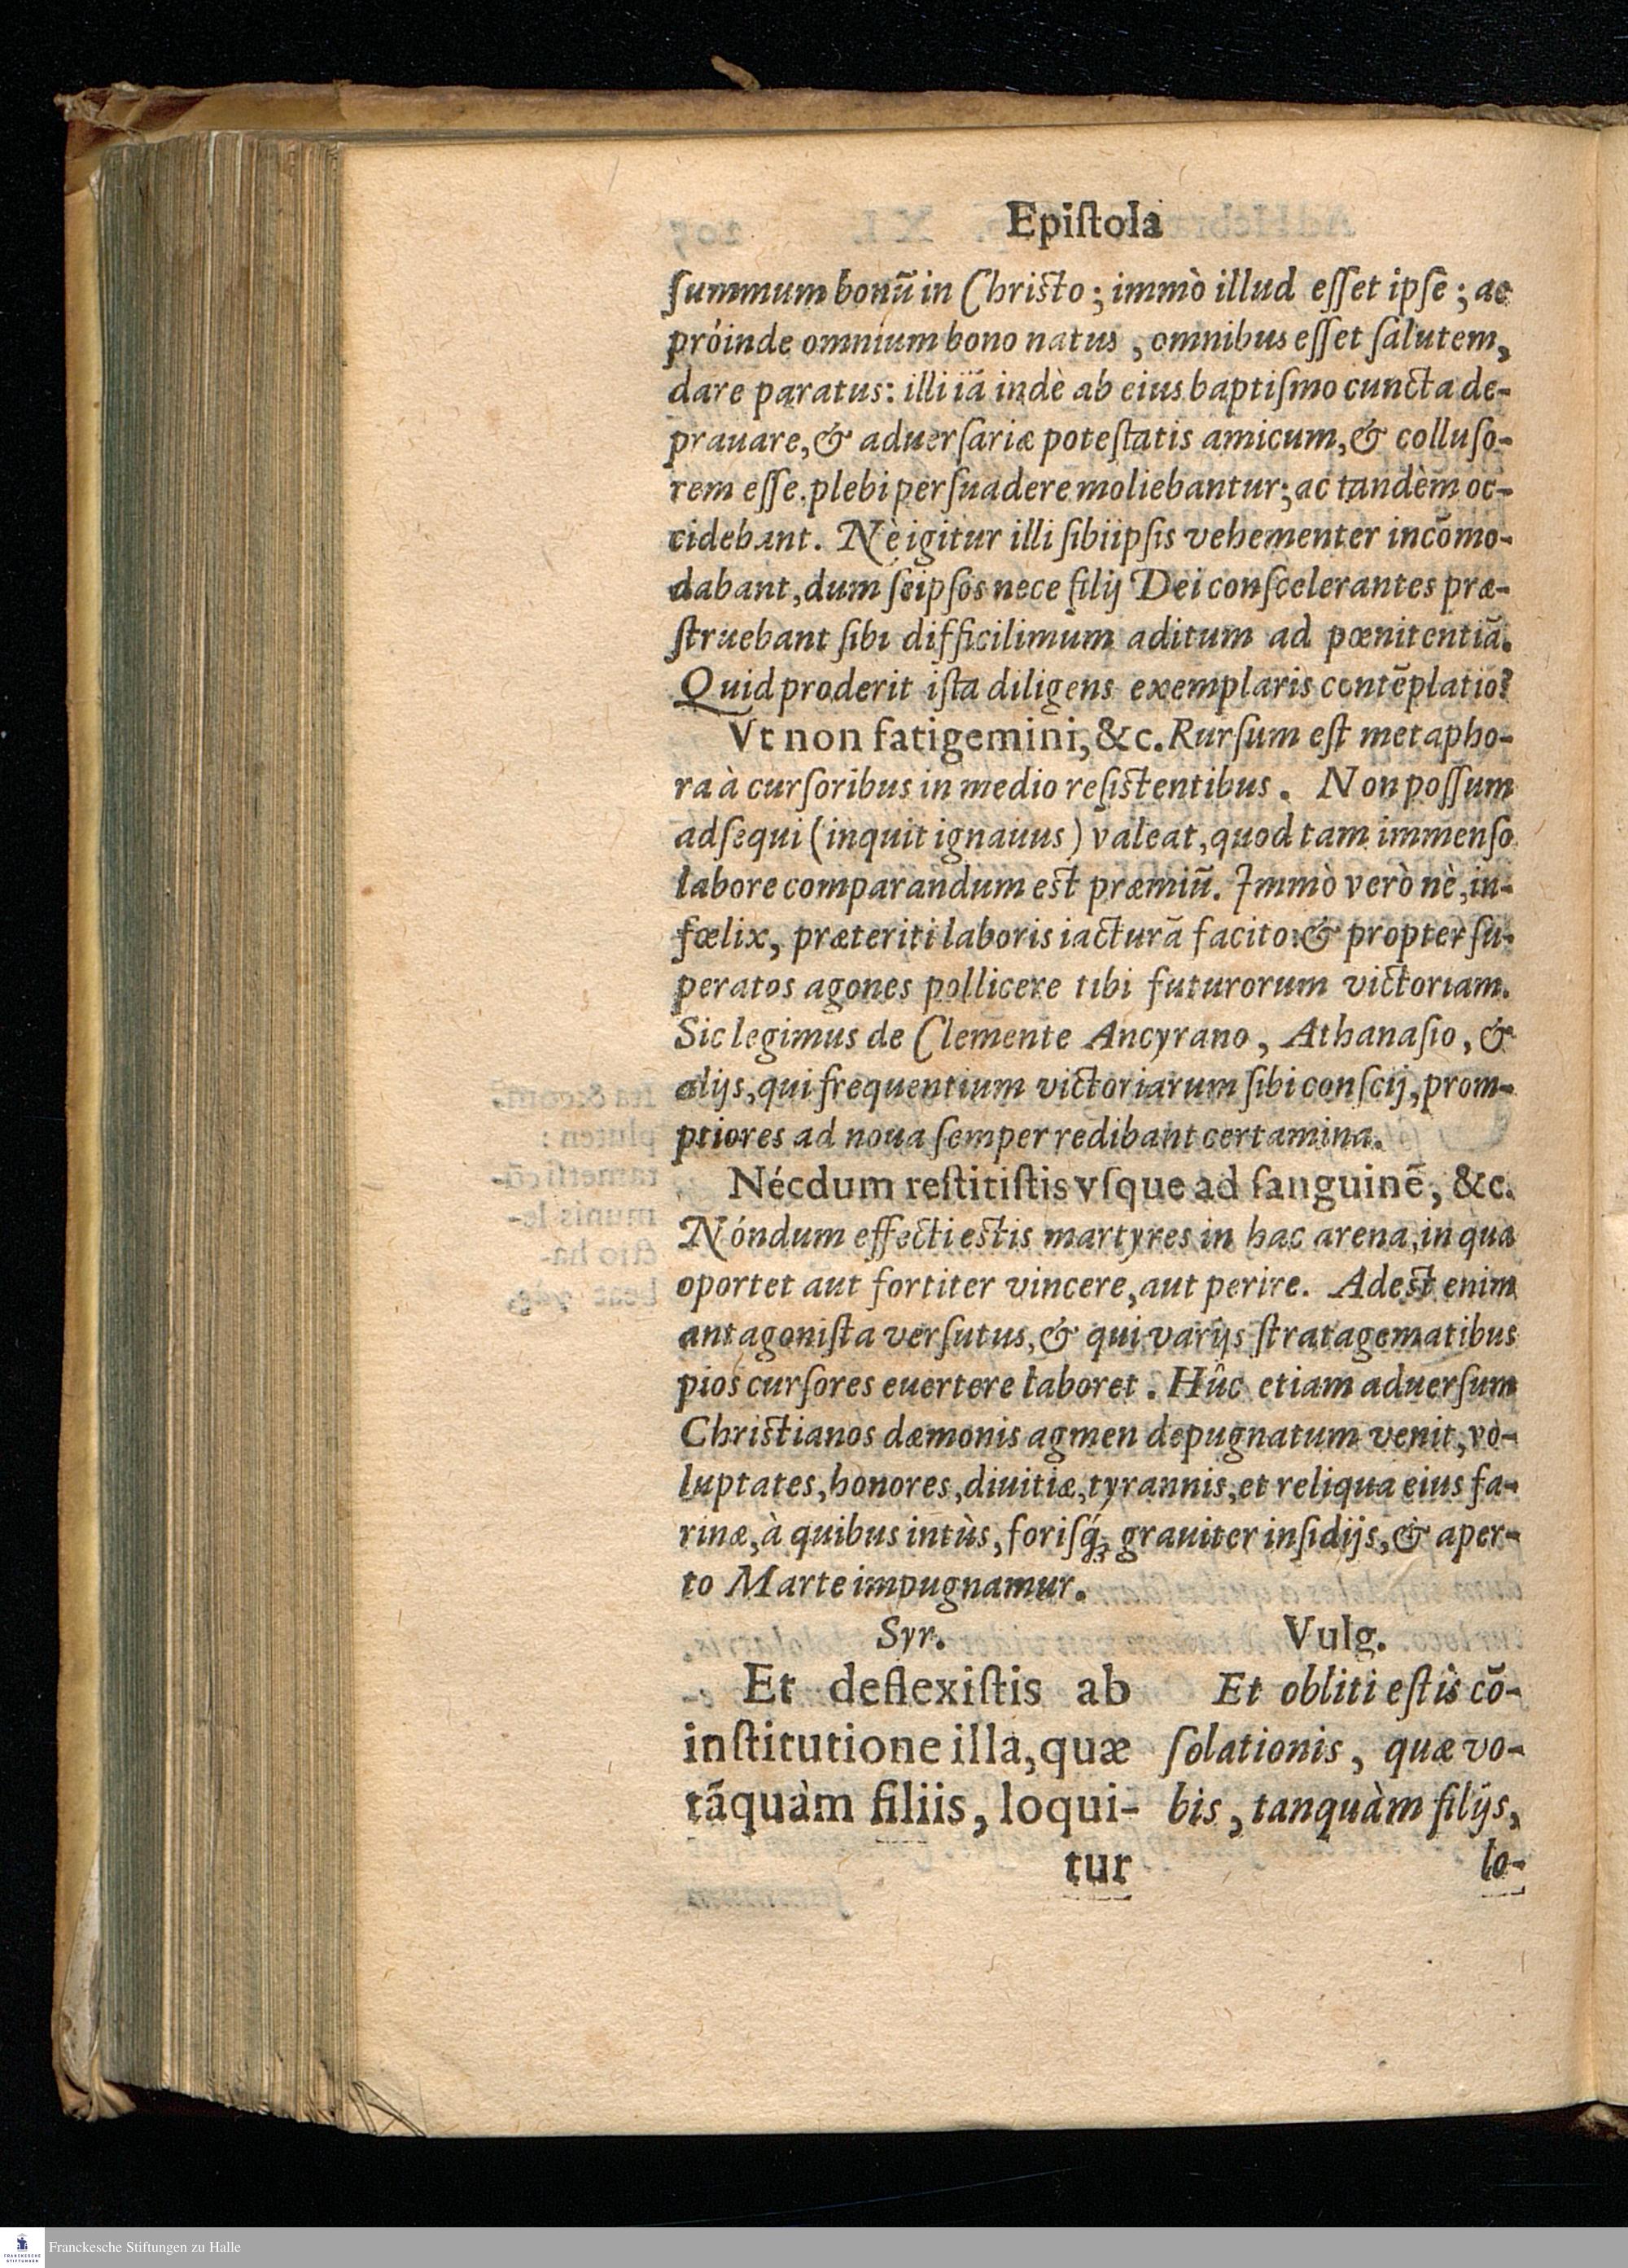 Epiſtola
ſummum bonũ in Chriſto; immò illud eſſet ipſe; ac
próinde omnium bono natus, omnibus eſſet ſalutem,
dare paratus: illi iã indè ab eius baptiſmo cuncta de-
prauare, & aduerſariæ poteſtatis amicum, & colluſo-
rem eſſe. plebi perſuadere moliebantur; ac tandèm oc-
cidebant. Nè igitur illi ſibiipſis vehementer incõmo-
dabant, dum ſeipſos nece filij Dei conſcelerantes præ-
ſtruebant ſibi difficilimum aditum ad pœnitentiã.
Quid proderit iſta diligens exemplaris contẽplatio?
Vt non fatigemini, &c. Rurſum eſt metapho-
ra à curſoribus in medio reſiſtentibus. Non poſſum
adſequi (inquit ignauus) valeat, quod tam immenſo
labore comparandum eſt præmiũ. Immò verò nè, in-
fœlix, præteriti laboris iacturã facito: & propter ſu-
peratos agones pollicere tibi futurorum victoriam.
Sic legimus de Clemente Ancyrano, Athanaſio, &
alijs, qui frequentium victoriarum ſibi conſcij, prom-
ptiores ad noua ſemper redibant certamina.
Nécdum reſtitiſtis vſque ad ſanguinẽ, &c.
Nóndum effecti eſtis martyres in hac arena, in qua
oportet aut fortiter vincere, aut perire. Adeſt enim
antagoniſta verſutus, & qui varijs ſtratagematibus
pios curſores euertere laboret. Hûc etiam aduerſum
Chriſtianos dæmonis agmen depugnatum venit, vo-
luptates, honores, diuitiæ, tyrannis, et reliqua eius fa-
rinæ, à quibus intùs, foriſq́; grauiter inſidijs, & aper-
to Marte impugnamur.
Syr.
Et deflexiſtis ab
inſtitutione illa, quæ
tãquàm filiis, loqui-
tur
Vulg.
Et obliti eſtis cõ-
ſolationis, quæ vo-
bis, tanquàm filijs,
lo-
Franckesche Stiftungen zu Halle